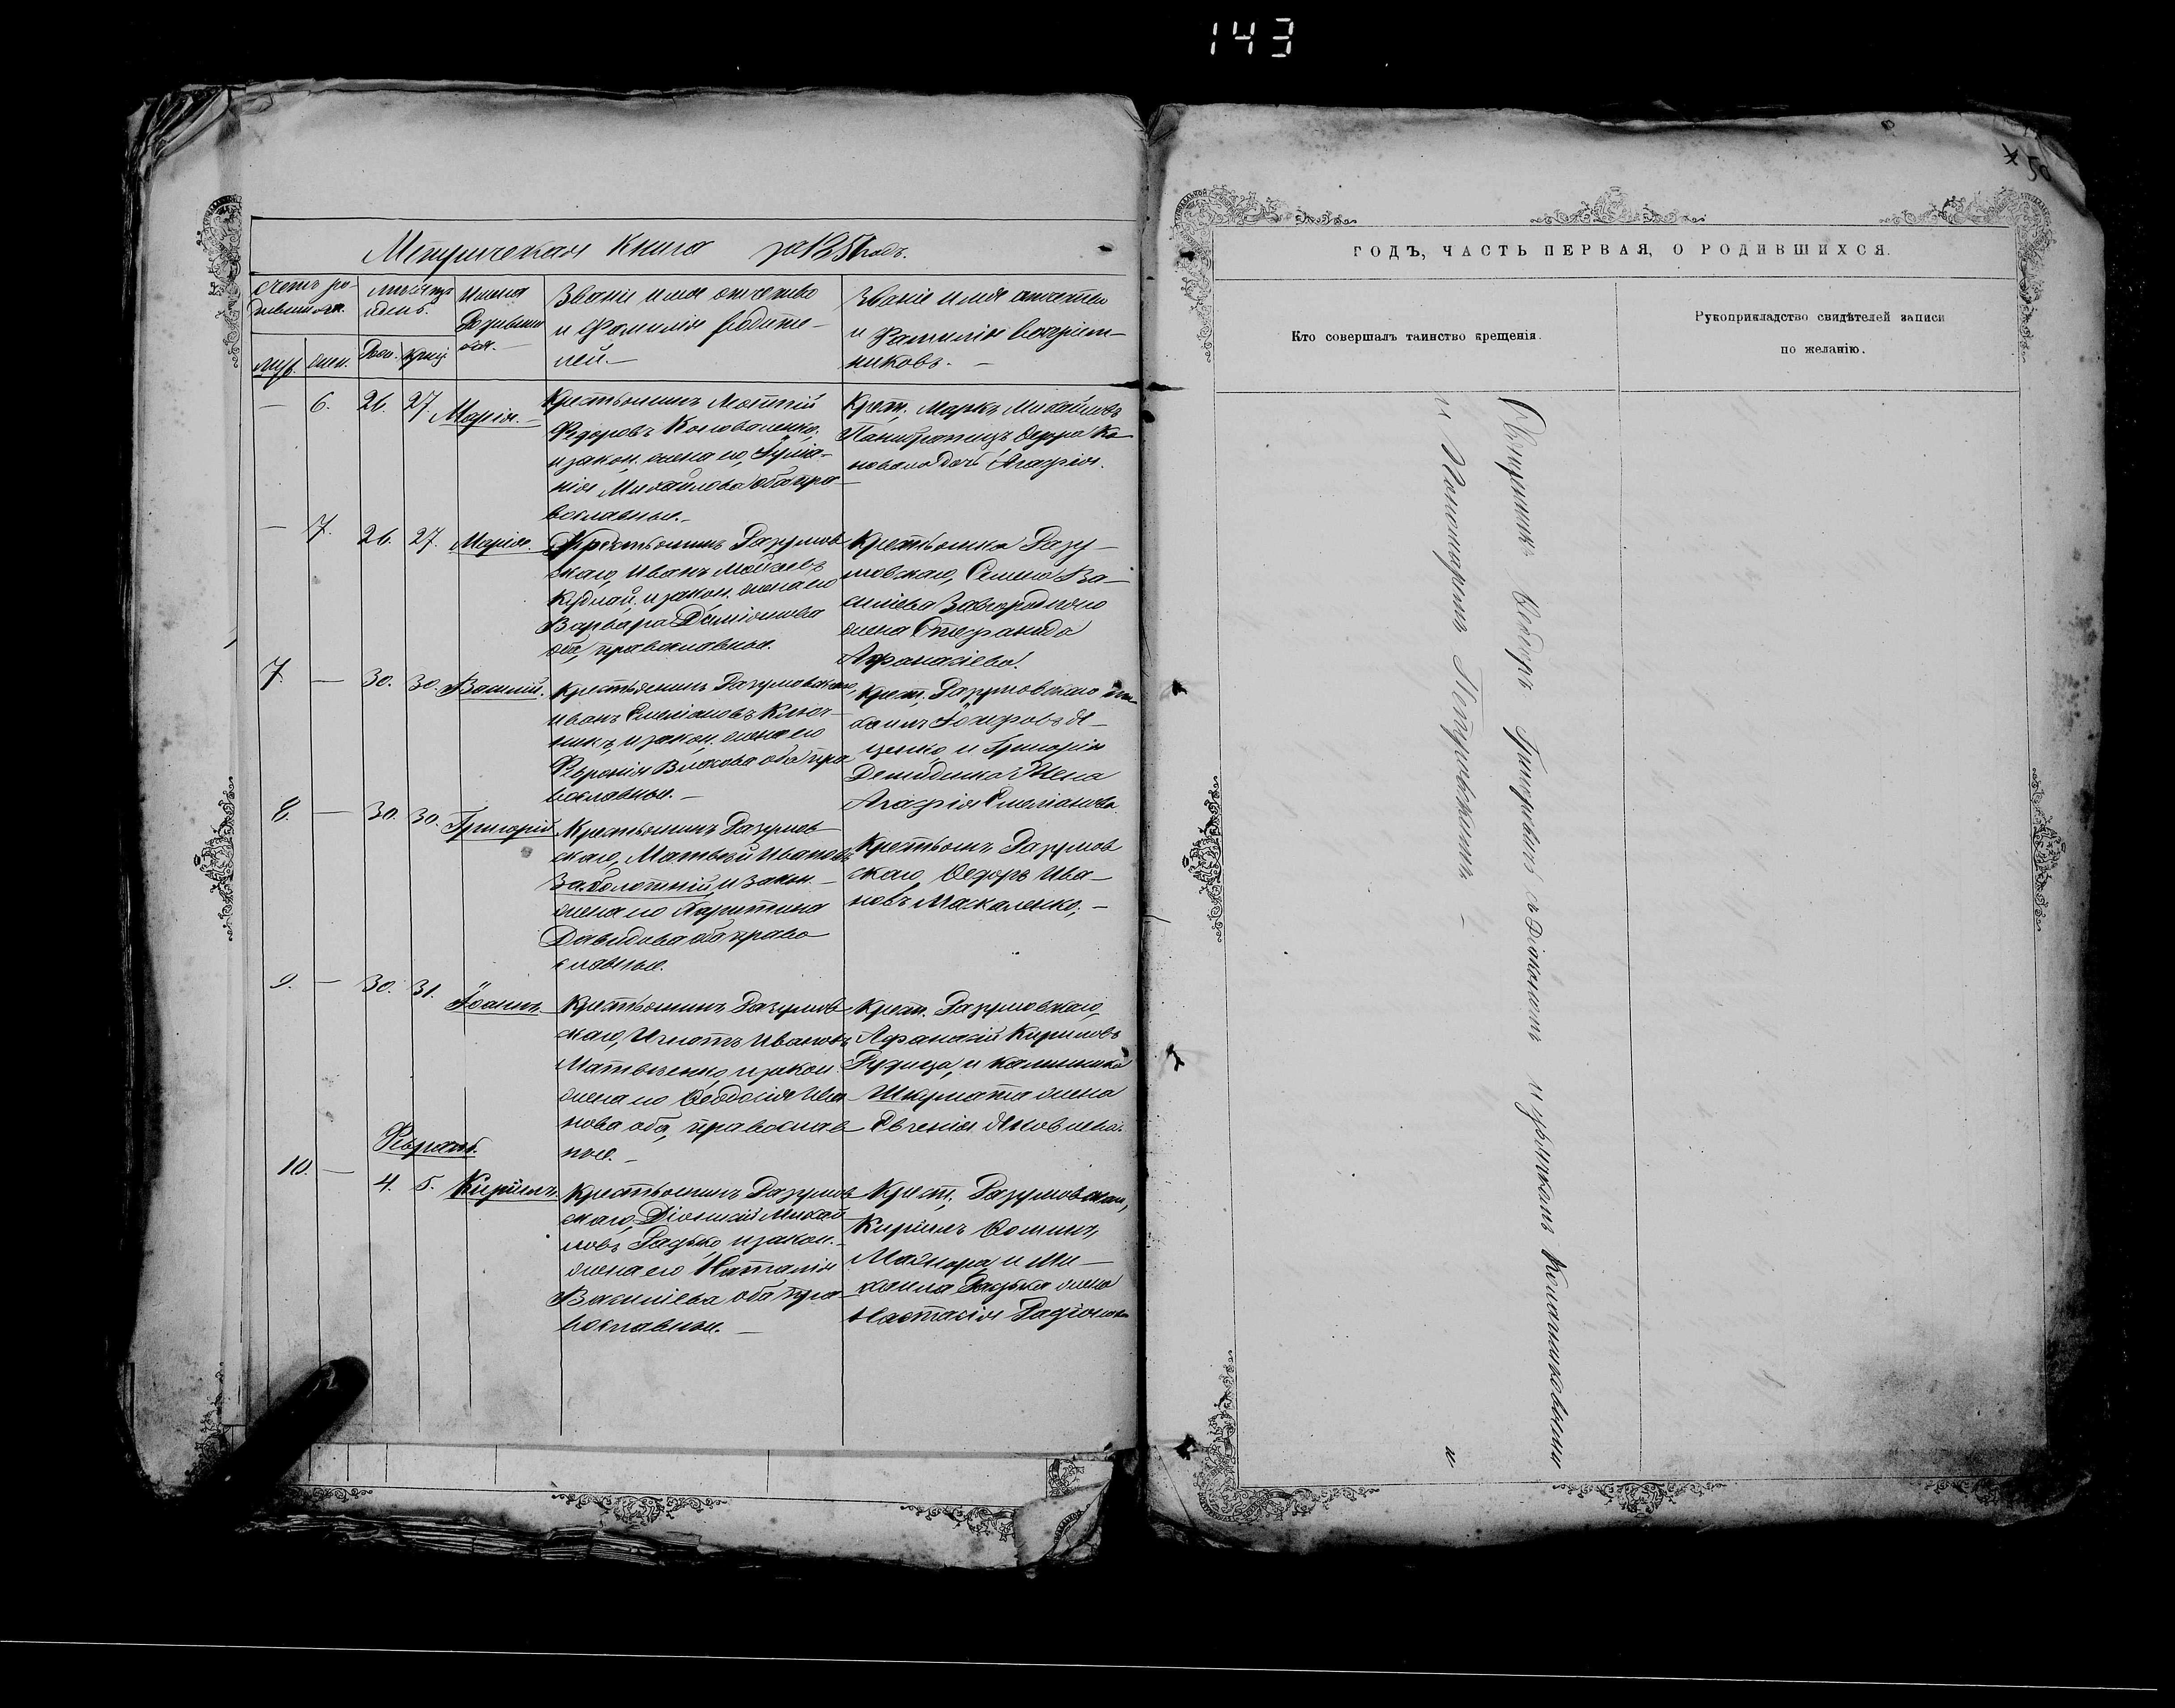 143
50
Метрическая книга за 1857 годъ.
Счетъ ро-
дившихся.
муж.
жен.
мѣсяцъ
и день.
Рож.
Крещ.
Имена
Родивши
хся.
Званіе имя отчество
и фамилія родите-
лей.
Званіе имя отчество
и фамилія воспріем-
никовъ.
— 6. 26. 27. Марія.
Крестьянинъ
Федоровъ Коноваленко,
и закон. жена его,
Михайлова оба пра
вославные.
Крест. Маркъ Михайловъ
дочь Агафія.
— 7. 26. 27. Марія.
Крестьянинъ Разумов
скаго, Иванъ Моисеевъ
Кудлай, и закон. жена его
Варвара Даміанова
оба, православные.
Крестьянка Разу-
мовскаго, Семена Ва-
силіева Завгородняго
жена Стефанида
Афанасіева.
7. — 30. 30. Василій.
Крестьянинъ Разумовскаго,
Иванъ Емеліановъ Ключ-
никъ, и закон. жена его
Февронія Власова оба пра
вославные.
Крест. Разумовскаго
и Григорія
Демиденка жена
Агафія Емеліанова
8. — 30. 30. Григорій
Крестьянинъ Разумов
скаго, Матвѣй Ивановъ
Заболотній, и закон.
жена его Харитина
Давидова оба право
славные.
Крестьян. Разумов
скаго Ѳедоръ Ива-
новъ Москаленко,
9. — 30. 31. Іоаннъ.
Крестьянинъ Разумов
скаго, Игнатъ Ивановъ
Матвѣенко, и закон.
жена его Ѳеодосія Ива
нова оба, православ
ные.
Крест. Разумовскаго,
Афанасій Кириловъ
и Калиника
жена
Евгенія Яковлева.
Февраль.
10. — 4. 5. Кириллъ.
Крестьянинъ Разумов
скаго, Діонисій Михай
ловъ Радько, и закон.
жена его Наталія
Василіева оба пра
вославные.
Крест. Разумовскаго,
Кириллъ Ѳоминъ,
и Ми-
хаила Радька жена
Настасія Радіонова
ГОДЪ, ЧАСТЬ ПЕРВАЯ, О РОДИВШИХСЯ.
Кто совершалъ таинство крещенія.
Рукоприкладство свидѣтелей записи
по желанію.
Священникъ Ѳедоръ Григоровичъ съ Діакономъ
и Пономаремъ